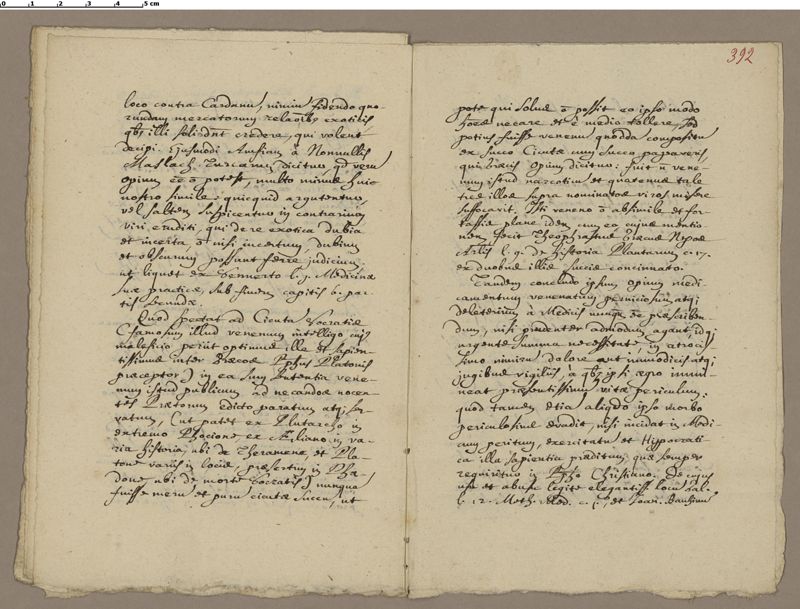 0 1 2 3 4 5 cm
392
loco contra Cardanū, nimiū fidendo quo-
rundam mercatorum relaōib9 exoticis
qb9 illi solidōnt credere, qui volent
decipi. Ejusmodi Amfiam à Nonnullis
Maslach Turcarum dicitur, qd verū
opium ēē ō potest, multo minus huic
nostro simile, quicquid argutentur,
vel saltem suspicentur in contrarium
viri eruditi, qui de re exotica dubia
et incerta, ō nisi incertum, dubium
et obscurum possunt ferre judicium,
ut liquet ex Sennerto l. 1. Medicinæ
suæ practicæ, sub finem capitis 6. par-
tis secundæ.
Quod spectat ad Cicuta Socratis
famosum illud venenum intelligo cuj9
maleficio periit optimus ille et sapien-
tissimus inter Græcos Ph̄us Platonis
præceptor) in ea sum sententia vene-
num istud publicum ad necandos nocen-
tes Prætorum edicto paratum atq; ser-
vatum, (ut patet ex Plutarcho in
extremo Phocione ex Æliano in va-
ria historia, ubi de Theramene, et Pla-
tone variis in locis, præsertim in Phæ-
done ubi de morte Socratis) nunquā
fuisse merū et purū cicutæ succū, ut
pote qui solus ō possit eo ipso modo
hoēs necare et è medio tollere, sed
potius fuisse venenū quodda compositū
ex succo Cicutæ cum succo papaveris,
qui Græcis Opium dicitur. fuit n̄ vene-
num istud narcoticū et quatenus tale
tres illos supra nominatos viros misere
suffocavit. Isti veneno ō absimile et for-
tassis plane idem cum eo cujus mentio-
nem fecit Theophrastus Eræsius Nepos
Artis l. 9. de historia Plantarum c. 17.
ex duobus illis succis concinnato.
Tandem concludo ipsum opium medi-
camentum venenatum perniciosum atq;
deleterium à Medicis nunqā ēē præscriben-
dum, nisi prudenter admodum agant, idq;
urgente summa necessitate in atrocis-
simo nimirū dolore aut immodicis atq;
jugibus vigiliis, à qb9 ipsi ægro immi-
neat præsentissimū vitæ periculum:
quod tamen etiā aliqdo ipso morbo
periculosius evadit, nisi incidat in Medi-
cum peritum, exercitatū et Hippocrati-
ca illa sapientia præditum, quæ semper
requiritur in Ph̄o Christiano. De cujus
usu et abusu legite elegantiss. locū Gal.
l. 12. Meth. Med. c. 1. et Joan. Bauhinū